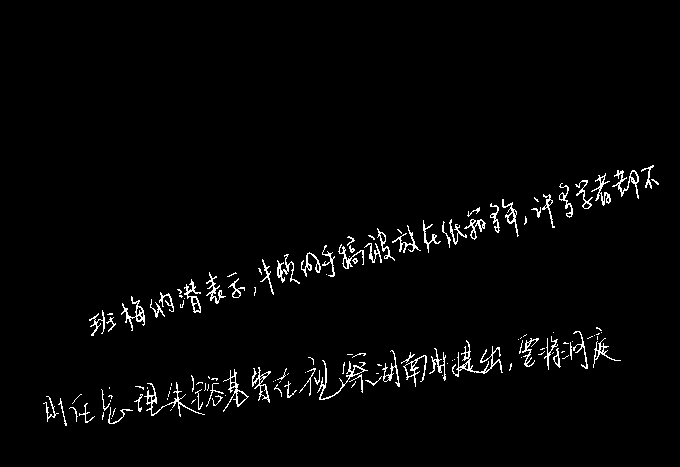 班梅纳潜表示,牛顿的手稿被放在纸箱多年,许多学者都不
时任总理朱镕基曾在视察湖南时提出,要将洞庭